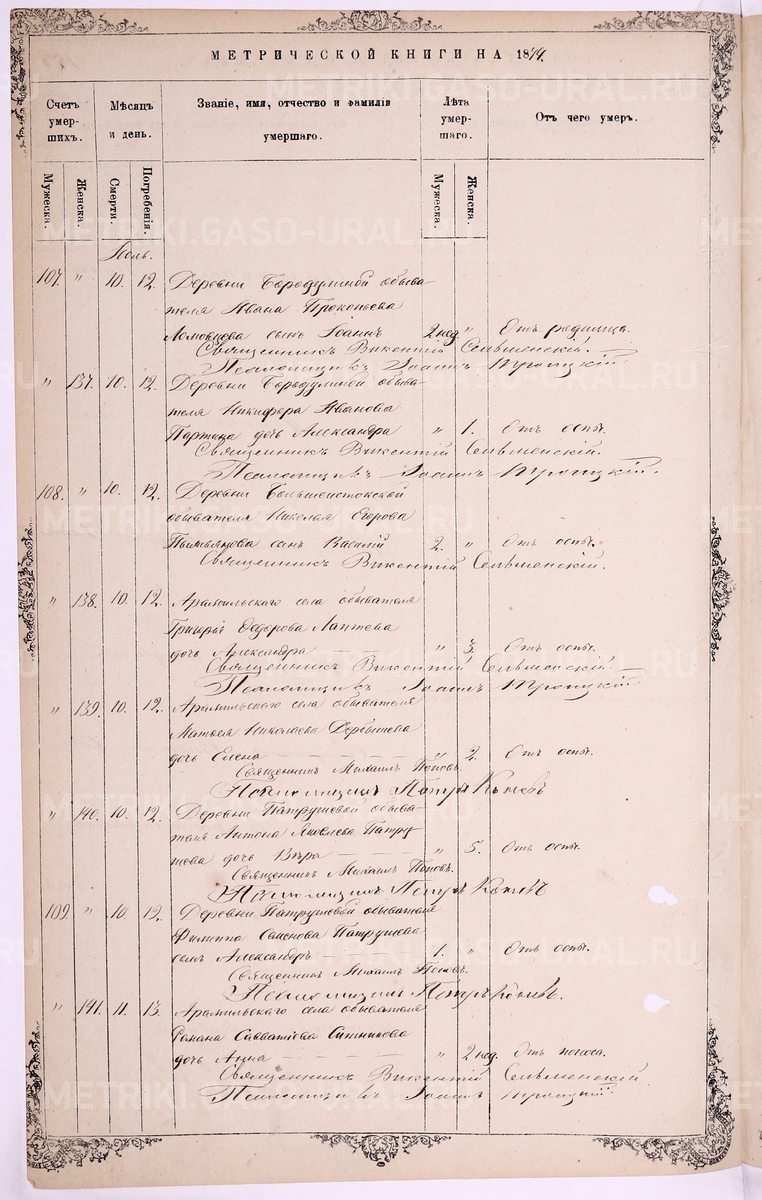 МЕТРИЧЕСКОЙ КНИГИ НА 1874.
Счетъ умер-шихъ.
Мѣсяцъ и день.
Званіе, имя, отчество и фамилія умершаго.
Лѣта умер-шаго.
Отъ чего умеръ.
Мужеска. Женска. Смерти. Погребенія. Мужеска. Женска.
Іюль.
107. " 10. 12. Деревни Бородулиной обыва-
теля Ивана Прокопьева
сынъ Іоаннъ 2 нед. " Отъ родимца.
Священникъ Викентій Сельменскій.
Псаломщикъ Іоаннъ Троицкій.
" 137. 10. 12. Деревни Бородулиной обыва-
теля Никифора Иванова
Партина дочь Александра " 1. Отъ оспы.
Священникъ Викентій Сельменскій.
Псаломщикъ Іоаннъ Троицкій.
108. " 10. 12. Деревни Большеистокской
обывателя Николая Егорова
сынъ Василій 2. " Отъ оспы.
Священникъ Викентій Сельменскій.
" 138. 10. 12. Арамильскаго села обывателя
Григорія Ѳедорова Лаптева
дочь Александра " 3. Отъ оспы.
Священникъ Викентій Сельменскій.
Псаломщикъ Іоаннъ Троицкій.
" 139. 10. 12. Арамильскаго села обывателя
Матвея Николаева Дербышева
дочь Елена " 2. Отъ оспы.
Священникъ Михаилъ Поповъ.
Псаломщикъ Петръ
" 140. 10. 12. Деревни Патрушевой обыва-
теля Антона Яковлева Патру-
шева дочь Вѣра " 5. Отъ оспы.
Священникъ Михаилъ Поповъ.
Псаломщикъ Петръ
109. " 10. 12. Деревни Патрушевой обывателя
Филиппа Семенова Патрушева
сынъ Александръ 1. " Отъ оспы.
Священникъ Михаилъ Поповъ.
Псаломщикъ Петръ
" 141. 11. 13. Арамильскаго села обывателя
Романа Савватіева Ситникова
дочь Анна " 2 нед. Отъ поноса.
Священникъ Викентій Сельменскій
Псаломщикъ Іоаннъ Троицкій.
METRIKI.GASO-URAL.RU